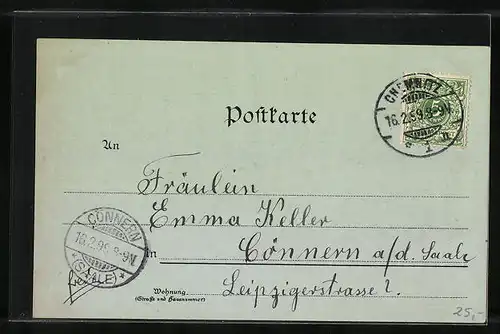 Postkarte
CHEMNITZ
16.2.99.8-9N.
* 1 n.
5
An
Fräulein
Emma Keller
in Cönnern a/d. Saale
Leipzigerstrasse 2.
Wohnung
(Straße und Hausnummer)
CÖNNERN
16.2.99.8-9N.
* (SAALE) *
25,-